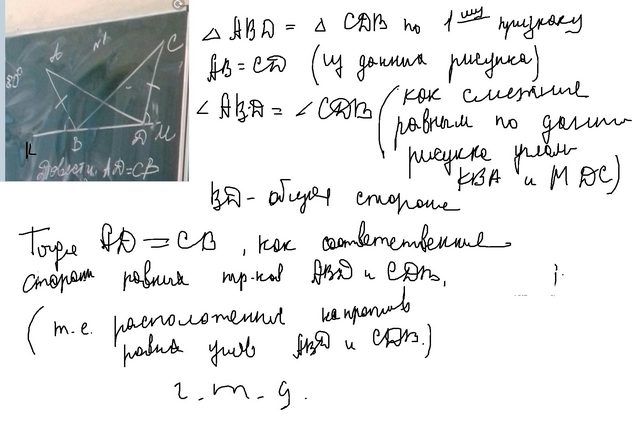 △ ABD = △ CDB по 1 ому признаку
AB = CD (из данных рисунка)
∠ ABD = ∠ CDB (как смежные
равным по данным
рисунка углам
KBA и MDC)
BD - общая сторона
Тогда AD = CB, как соответственные
стороны равных тр-ков ABD и CDB,
(т.е. расположенные напротив
равных углов ABD и CDB.)
ч.т.д.
A
N1
C
B
D
M
K
Довести AD=CB